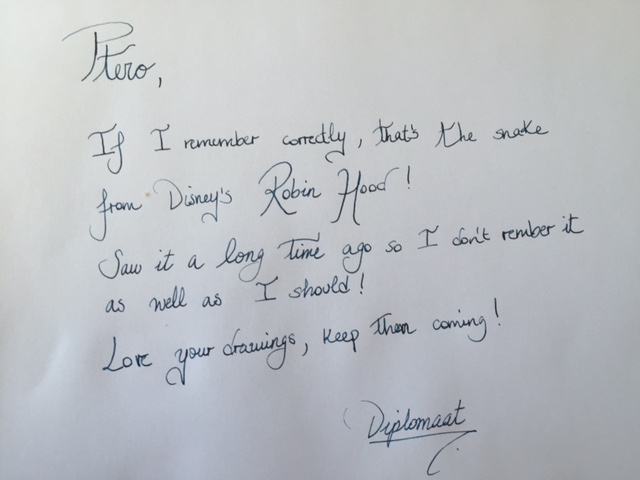 Ptero,
If I remember correctly, that's the snake
from Disney's Robin Hood!
Saw it a long time ago so I don't rember it
as well as I should!
Love your drawings, keep them coming!
Diplomaat